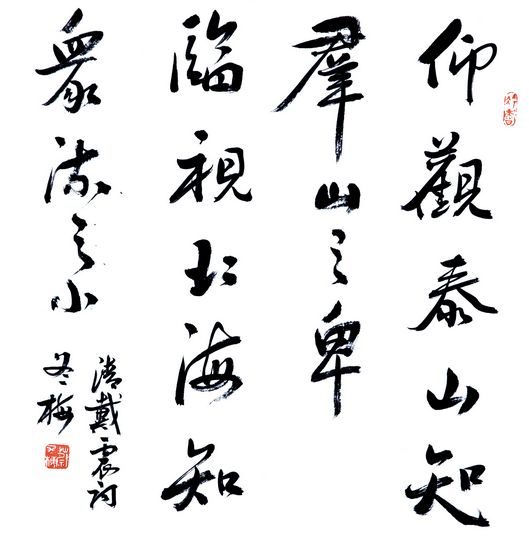 仰觀泰山知
羣山之卑
臨視北海知
眾流之小
清戴震詞
冬梅